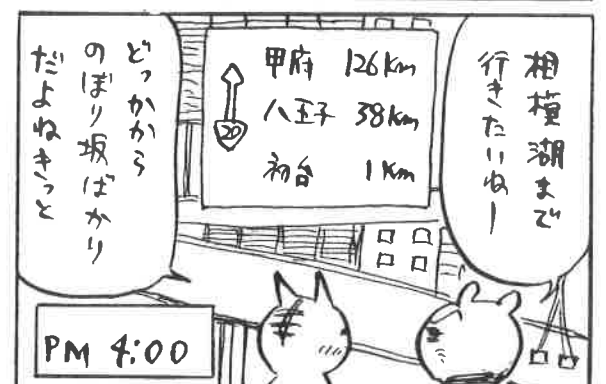 相模湖まで
行きたいねー
甲府 126Km
八王子 38Km
初台 1Km
20
どっかから
のぼり坂ばかり
だよねきっと
PM 4:00